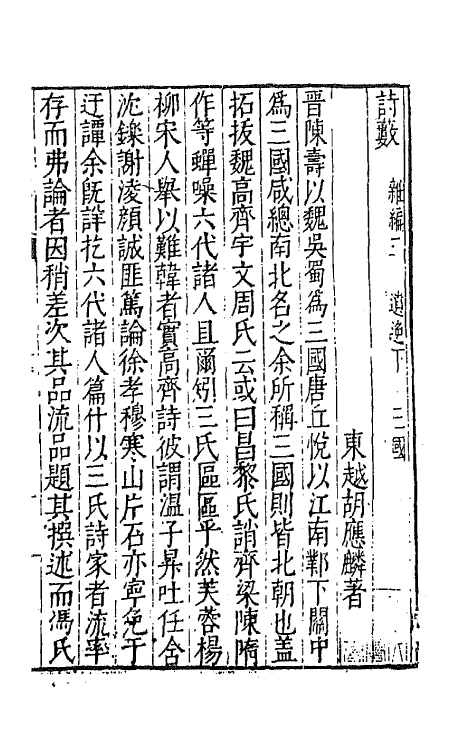 詩藪 雜編三 遺逸下 三國
東越胡應麟著
晉陳壽以魏吳蜀爲三國唐丘悅以江南鄴下關中
爲三國咸總南北名之余所稱三國則皆北朝也蓋
拓拔魏高齊宇文周氏云或曰昌黎氏誚齊梁陳隋
作等蟬噪六代諸人且爾矧三氏區區乎然芙蓉楊
柳宋人舉以難韓者實高齊詩彼謂溫子昇吐任舍
沈鑠謝凌顏誠匪篤論徐孝穆寒山片石亦寧免于
迂譚余旣詳挖六代諸人篇什以三氏詩家者流率
存而弗論者因稍差次其品流品題其撰述而馮氏